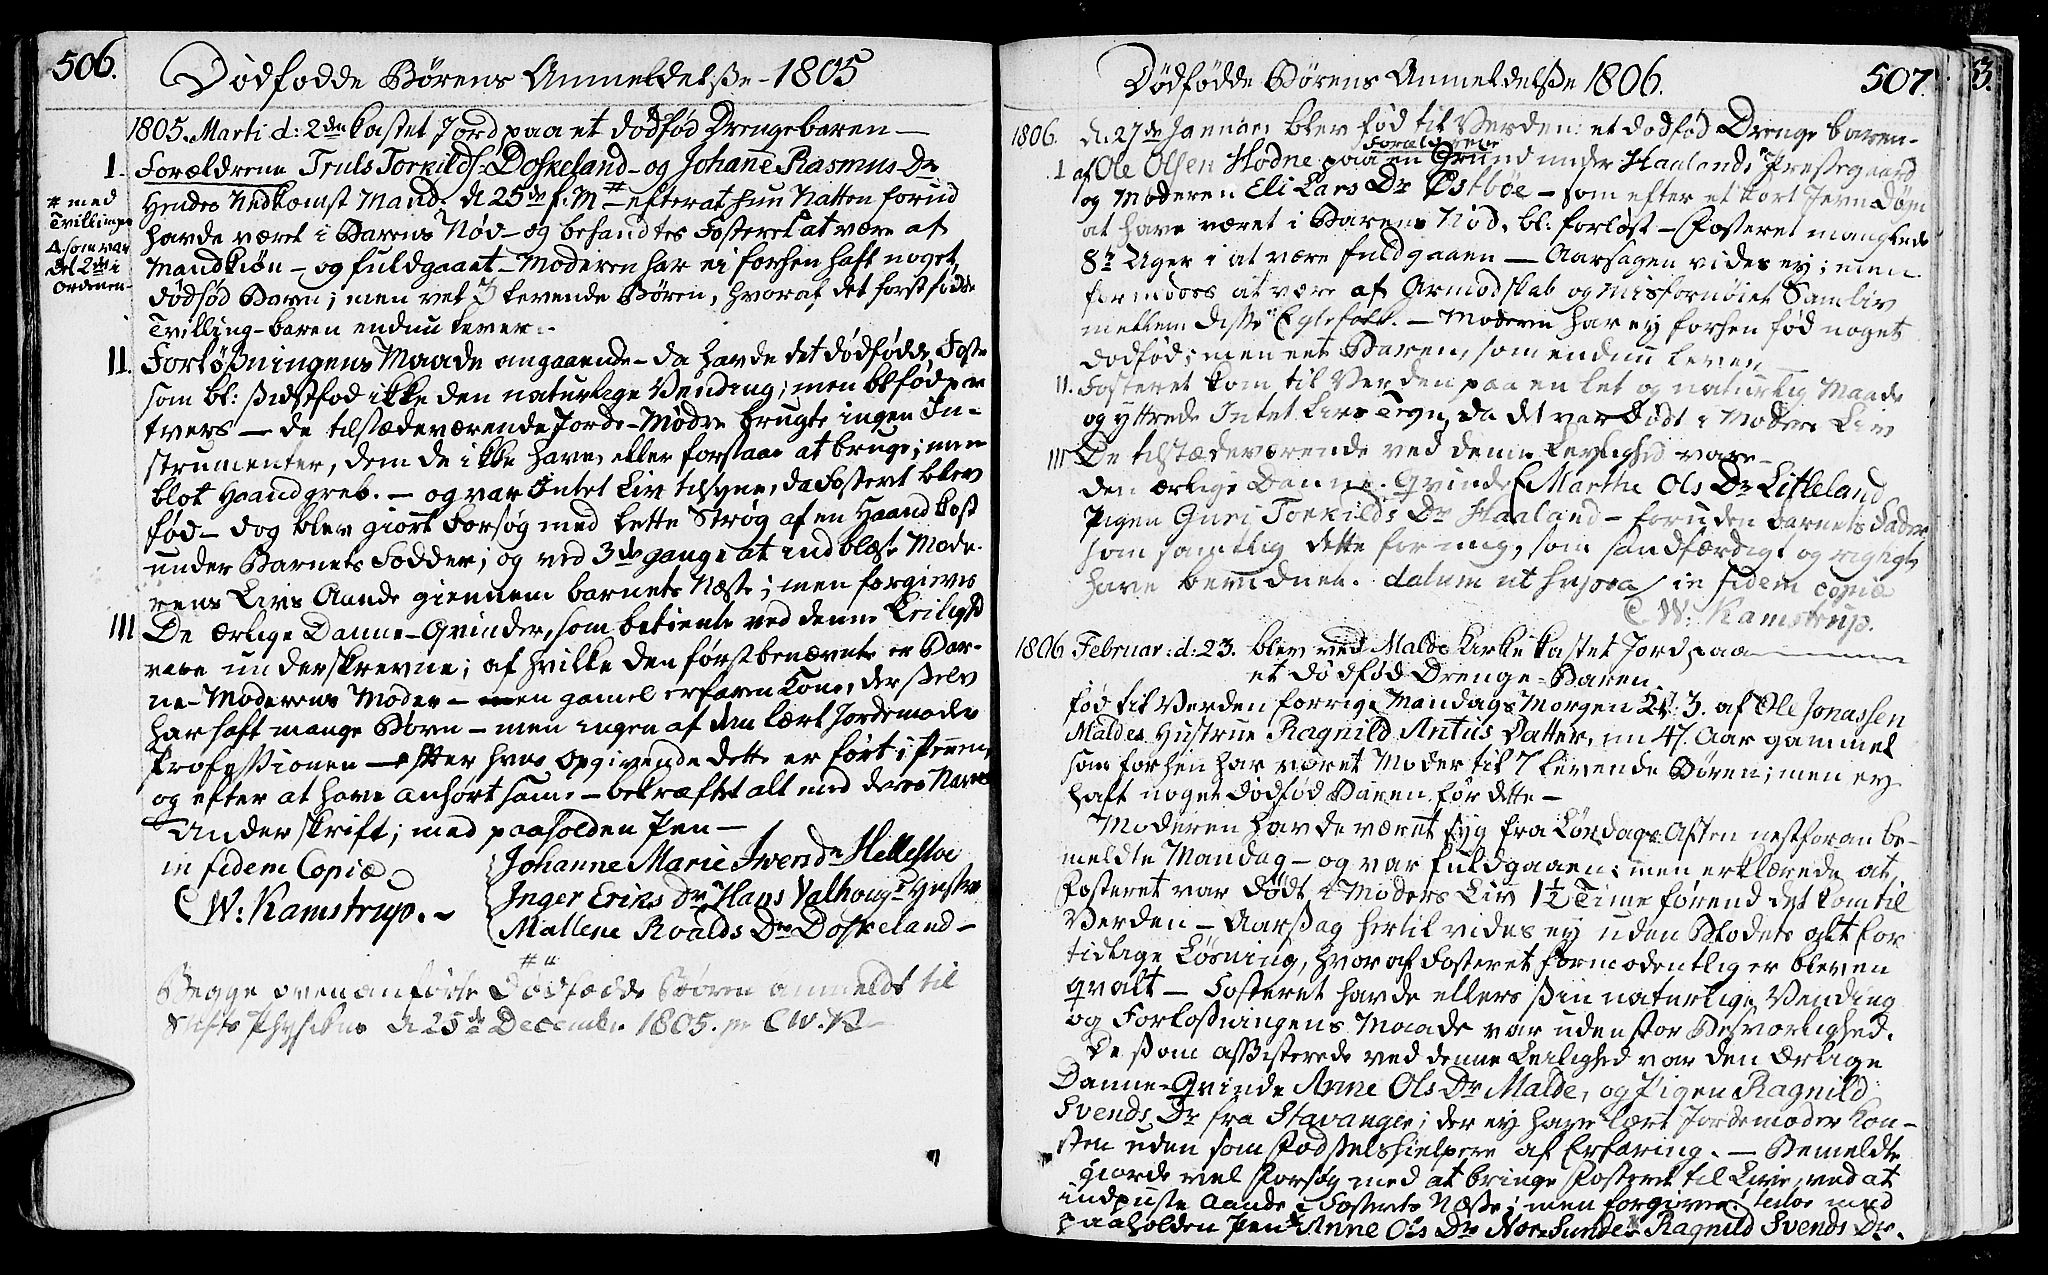 506.
Dødfødde Børens Anmeldelsse - 1805
1805. Marti d: 2de kastet Jord paa et dødfød Drengebaren —
I. Forældrene Truls Torkilds: Doskeland - og Johane Rasmus Dr
# med
Tvillinger
Δ som var
det 2det i
Ordenen
Hendes Nedkomst Mand. d 25de f. M # efter at hun Natten forud
havde været i Barens Nød - og befandtes Fosteret at være af
Mandkiøn - og fuldgaaet - Moderen har ei forhen haft noget
dødfød Baren; men vel 3 levende Børen, hvoraf det først fødde
Tvilling-baren endnu lever.
II. Forløssningens Maade angaaende - da havde det dødfødde Foster
som bl: sidst fød ikke den naturlige Vending; men bl. fød paa
tvers — de tilstædeværende Jorde-Mødre brugte ingen In-
strumenter, dem de ikke have, eller forstaae at bruge; men
blot Haandgreb. — og var Intet Liv tilsyne, da Fosteret blev
fød - dog blev giort Forsøg med lette Strøg af en Haandkost
under Barnets Fødder; og ved 3de gange at indblæse Mode-
rens Livs Aande giennem barnets Næse; men forgieves
III De ærlige Danne-Qvinder, som betiente ved denne Leilighd
vare underskrevne; af hvilke den førstbenævnte er Bar-
ne-Moderens Moder - en gamel erfaren Kone, der sselv
har haft mange Børn - men ingen af dem lært Jordemoder
Professionen — efter hvis Opgivende dette er ført i Pennen,
og efter at have anhørt samme - bekræftet alt med deres Navne
Underskrift; med paaholden Pen —
in fidem Copiæ
CW: Kamstrup. ~
Johanne Marie Ivers Dr Hellestoe
Inger Eriks Dr Hans Valhougs Hustru
Mallene Roalds Dr Doskeland —
Begge ovenanførte Dødfødde Børen anmeldt til
Stifts Physikus d 25de December 1805. pr CW. K
Dødfødde Børens Anmeldelsse 1806.
507.
1806. d. 27de Januar blev fød til Verden et dødfød Drenge baren -
Forældrene
I af Ole Olsen Hodne paa en Grund under Haalands Prestegaard
og Moderen Eli Lars Dr Østbøe - som efter et kort Jevn Døgn
at have været i Barens Nød, bl: forløst - Fosteret manglede
8te Uger i at være fuldgaaen — Aarsagen vides ey; men
formodes at være af Armodskab og misfornøiet Samliv
mellem disse Egtefolk. — Moderen har ey forhen fød noget
dødfød; men eet Baren, som endnu lever
II. Fosteret kom til Verden paa en let og naturlig Maade
og yttrede Intet Livs Tegn, da det var Dødt i Moders Liv
III De tilstædeværende ved denne Leylighed vare
den ærlige Danne-Qvinde Marthe Ols Dr Litleland
Pigen Guri Torkilds Dr Haaland - foruden barnets Fader
som samtlig dette for mig, som sandfærdigt og rigtigt
have bevidnet. datum ut supra / in fidem copiæ
CW: Kamstrup.
1806 Februar: d: 23. blev ved Malde Kirke kastet Jord paa
et dødfød Drenge-Baren
fød til Verden forrige Mandags Morgen Kl. 3. af Ole Jonassen
Maldes Hustrue Ragnild Antus Datter, nu 47 Aar gammel
som forhen har været Moder til 7 levende Børen; men ey
haft noget dødfød Baren før dette —
Moderen havde været syg fra Løndags Aften nest foran be-
meldte Mandag - og var fuldgaaen; men erklærede at
Fosteret var Dødt i Moders Liv 1½ Time førend det kom til
Verden - Aarssag hertil vides ey uden Blodets alt for
tidlige Løsning, hvoraf Fosteret formodentlig er bleven
qvalt — Fosteret havde ellers ssin naturlige Vending
og Forløsningens Maade var uden stor Besværlighed.
De ssom assisterede ved denne Leilighed var den Ærlige
Danne-Qvinde Anne Ols Dr Malde, og Pigen Ragnild
Svends Dr fra Stavanger; der ey have lært Jordemoder Kon-
sten uden som Fødsselshielpere af Erfaring. — Bemeldte
giorde vel Forsøg med at bringe Fosteret til Live, ved at
indpuste Aande i Fosterets Næse; men forgieves! testor med
paaholden Pen Anne Ols Dr Ragnild Svends Dr.